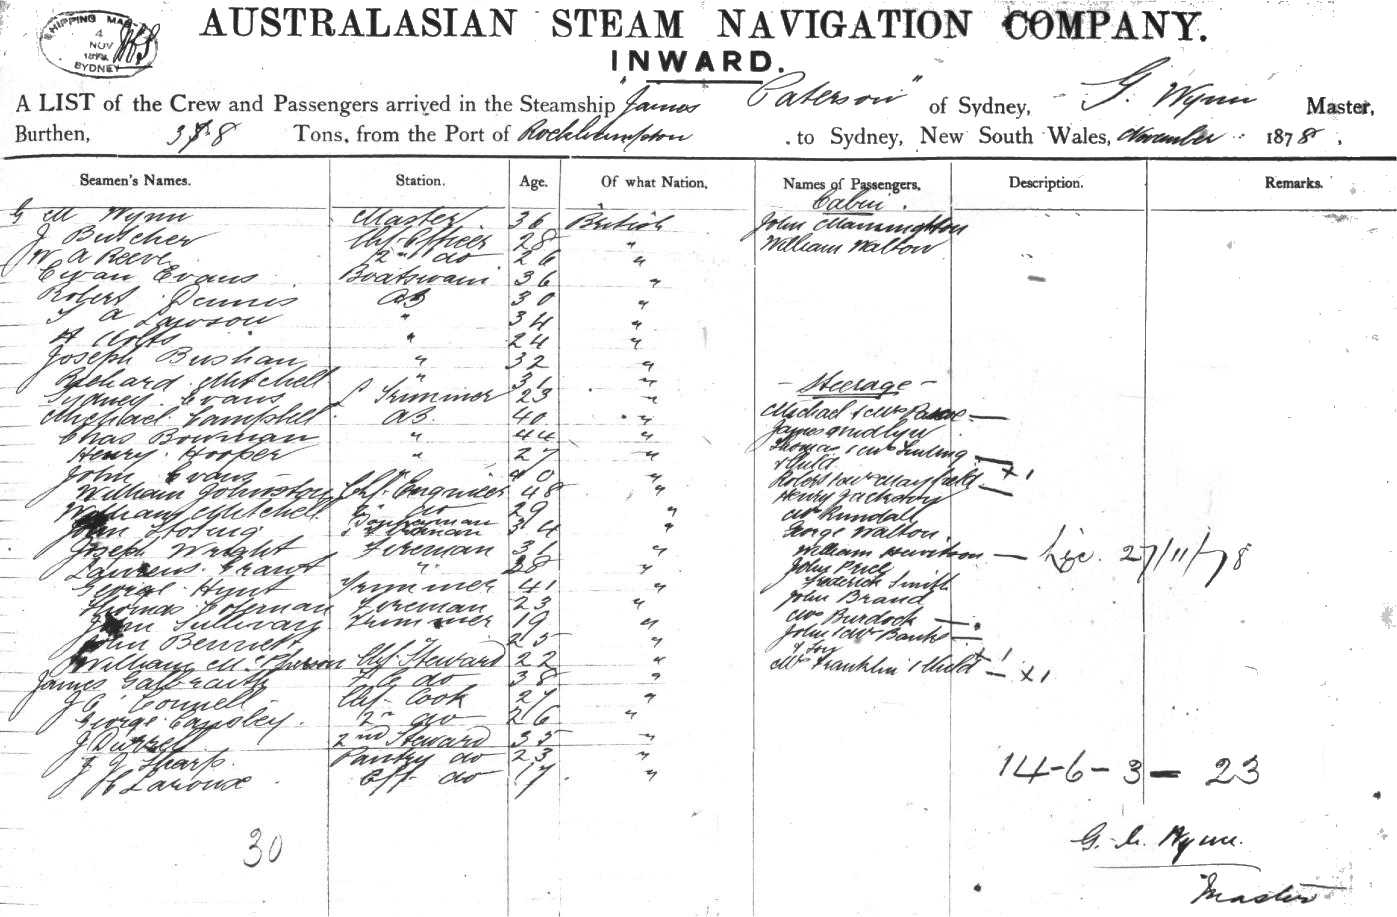 SHIPPING MAS
4
NOV
1878
SYDNEY
AUSTRALASIAN STEAM NAVIGATION COMPANY.
INWARD.
A LIST of the Crew and Passengers arrived in the Steamship "James Paterson" of Sydney, G. Wynn Master,
Burthen, Tons, from the Port of Rockhampton to Sydney, New South Wales, November 1878.
Seamen's Names. Station. Age. Of what Nation. Names of Passengers. Description. Remarks.
Cabin.
G M Wynn Master 36 British John Mannington
J Butcher Chf. Officer 28 " William Walton
W A Reeve 2nd do 26 "
Evan Evans Boatswain 36 "
Robert Dennis AB 30 "
T A Lawson " 34 "
H " 24 "
Joseph Bushan " 32 "
Richard Mitchell " 31 " - Steerage -
Sydney Evans Trimmer 23 "
Michael Campbell AB. 40 " Michael & Mrs
Chas Bowman " 44 " James
Henry Hooper " 27 " Thomas & Mrs
& Child
John Evans " 40 " Robert & Mrs Mayfield x 1
William Johnston Chf. Engineer 48 " Henry Jackson
William Mitchell do 29 " Mr Rundall
John Hosing Fireman 34 " George Walton.
Joseph Wright Fireman 31 " William - 27/11/78
Laurens Grant " 28 " John Price
George Hunt Trimmer 41 " Frederick Smith
Thomas Coleman Fireman 23 " John Brand
John Sullivan Trimmer 19 " Mrs Burdock
John Bennett " 25 " John & Mrs Banks
William McPherson Chf. Steward 22 " Mrs Franklin & Child x 1
James Galbraith F C do 38 "
J C Connell Chf. Cook 27 "
George Cansley. 2nd do 26 "
J 2nd Steward 35 "
J J Sharp. Pantry do 23 "
J H Laroux do 17. "
14-6-3 - 23
30
G. M. Wynn.
Master